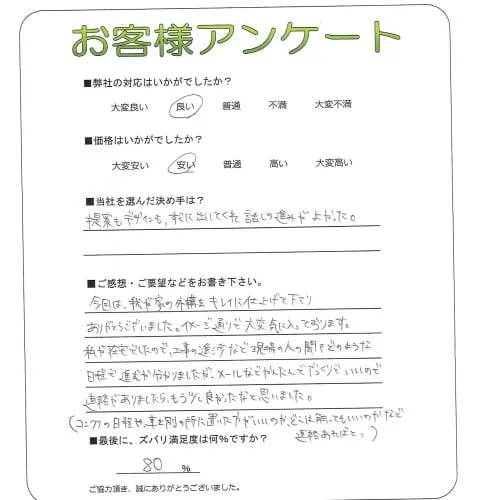 お客様アンケート
■弊社の対応はいかがでしたか？
大変良い 良い 普通 不満 大変不満
■価格はいかがでしたか？
大変安い 安い 普通 高い 大変高い
■当社を選んだ決め手は？
提案もデザインも、すぐに出してくれて話しの進みがよかった。
■ご感想・ご要望などをお書き下さい。
今回は、我が家の外構をキレイに仕上げて下さり
ありがとうございました。イメージ通りで大変気に入っております。
私が在宅でしたので、工事の進渉など現場の人の聞いてどのような
日程で進むか分かりましたが、メールなどかんたんでざっくりでいいので
連絡がありましたら、もっと良かったなと思いました。
(コンクリの日程や、車を別の所に置いた方がいいのか、どこは触ってもいいのかなど
連絡あればと。)
■最後に、ズバリ満足度は何％ですか？
80 ％
ご協力頂き、誠にありがとうございました。